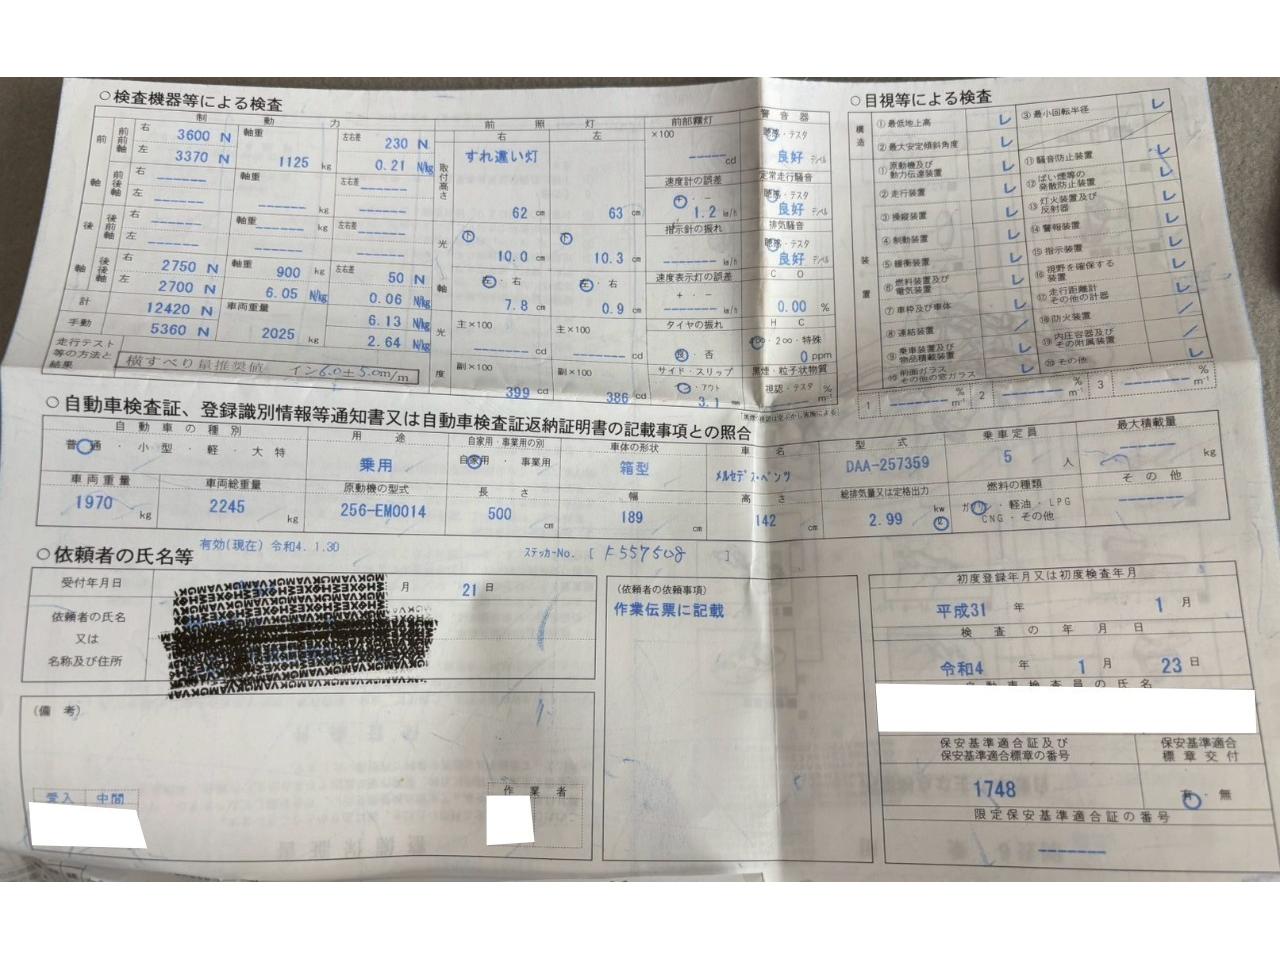 ○検査機器等による検査
制 動 力
前軸 前前軸 右 3600 N 軸重 1125 kg 左右差 230 N
左 3370 N 0.21 N/kg
前後軸 右 ------ 軸重 ------ kg 左右差 ------
左 ------
後軸 後前軸 右 ------ 軸重 ------ kg 左右差 ------
左 ------
後後軸 右 2750 N 軸重 900 kg 左右差 50 N
左 2700 N 6.05 N/kg 0.06 N/kg
計 12420 N 車両重量 2025 kg 6.13 N/kg
手動 5360 N 2.64 N/kg
走行テスト等の方法と結果
横すべり量推奨値 イン6.0±5.0m/m
前 照 灯
右 左
すれ違い灯
取付高さ 62 cm 63 cm
光軸 下 10.0 cm 下 10.3 cm
左・右 7.8 cm 左・右 0.9 cm
光度 主×100 ------ cd 主×100 ------ cd
副×100 399 cd 副×100 386 cd
前部霧灯
×100 ------ cd
速度計の誤差
+・- 1.2 km/h
指示針の振れ
------ km/h
速度表示灯の誤差
+・- ------ km/h
タイヤの振れ
良・否
サイド・スリップ
イン・アウト 3.1
警 音 器
聴感・テスタ
良好 デシベル
定常走行騒音
聴感・テスタ
良好 デシベル
排気騒音
聴感・テスタ
良好 デシベル
C O
0.00 %
H C
4∞・2∞・特殊
0 ppm
黒煙・粒子状物質
視認・テスタ %
m⁻¹
○目視等による検査
構造
①最低地上高 レ
②最大安定傾斜角度 レ
③最小回転半径 レ
装置
①原動機及び動力伝達装置 レ
②走行装置 レ
③操縦装置 レ
④制動装置 レ
⑤緩衝装置 レ
⑥燃料装置及び電気装置 レ
⑦車枠及び車体 レ
⑧連結装置 ／
⑨乗車装置及び物品積載装置 レ
⑩前面ガラスその他の窓ガラス レ
⑪騒音防止装置 レ
⑫ばい煙等の発散防止装置 レ
⑬灯火装置及び反射器 レ
⑭警報装置 レ
⑮指示装置 レ
⑯視野を確保する装置 レ
⑰走行距離計その他の計器 レ
⑱防火装置 ／
⑲内圧容器及びその附属装置 ／
⑳その他 レ
1 ------ % m⁻¹ 2 ------ % m⁻¹ 3 ------ % m⁻¹
○自動車検査証、登録識別情報等通知書又は自動車検査証返納証明書の記載事項との照合
自動車の種別 用途 自家用・事業用の別 車体の形状 車名 型式 乗車定員 最大積載量
普通・小型・軽・大特 乗用 自家用・事業用 箱型 メルセデス・ベンツ DAA-257359 5 人 ------ kg
車両重量 車両総重量 原動機の型式 長さ 幅 高さ 総排気量又は定格出力 燃料の種類 その他
1970 kg 2245 kg 256-EM0014 500 cm 189 cm 142 cm 2.99 kw ℓ ガソリン・軽油・LPG CNG・その他 ------
○依頼者の氏名等
有効(現在) 令和4.1.30
ステッカーNo. [ ド557508 ]
受付年月日 月 21 日
依頼者の氏名又は名称及び住所
(依頼者の依頼事項)
作業伝票に記載
(備 考)
受入 中間
作 業 者
初度登録年月又は初度検査年月
平成31 年 1 月
検査の年月日
令和4 年 1 月 23 日
自動車検査員の氏名
保安基準適合証及び保安基準適合標章の番号
1748
保安基準適合標章交付
有・無
限定保安基準適合証の番号
-------